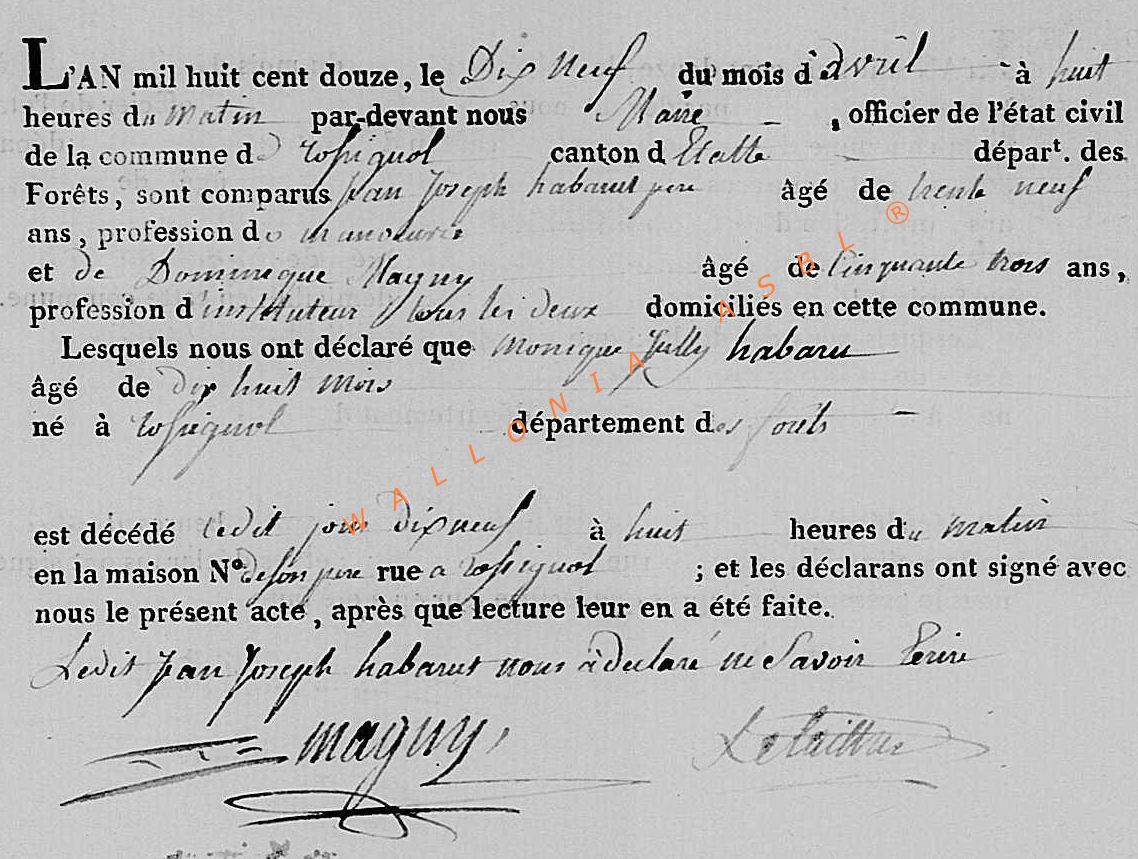 L'AN mil huit cent douze, le Dix neuf du mois d'avril à huit
heures du matin par-devant nous Maire, officier de l'état civil
de la commune de Rossignol canton d'Etalle départ. des
Forêts, sont comparus Jean Joseph habarut pere âgé de trente neuf
ans, profession de manouvrie
et de Dominique Magny âgé de Cinquante trois ans,
profession d'instituteur tous les deux domiciliés en cette commune.
Lesquels nous ont déclaré que Monique Jully habaru
âgé de dix huit mois
né à Rossignol département des forêts
est décédé ledit jour dix neuf à huit heures du matin
en la maison N° de son pere rue a Rossignol ; et les déclarans ont signé avec
nous le présent acte, après que lecture leur en a été faite.
Ledit Jean Joseph habarut nous à declaré ne Savoir Ecrire
magny
WALLONIA ASBL ®